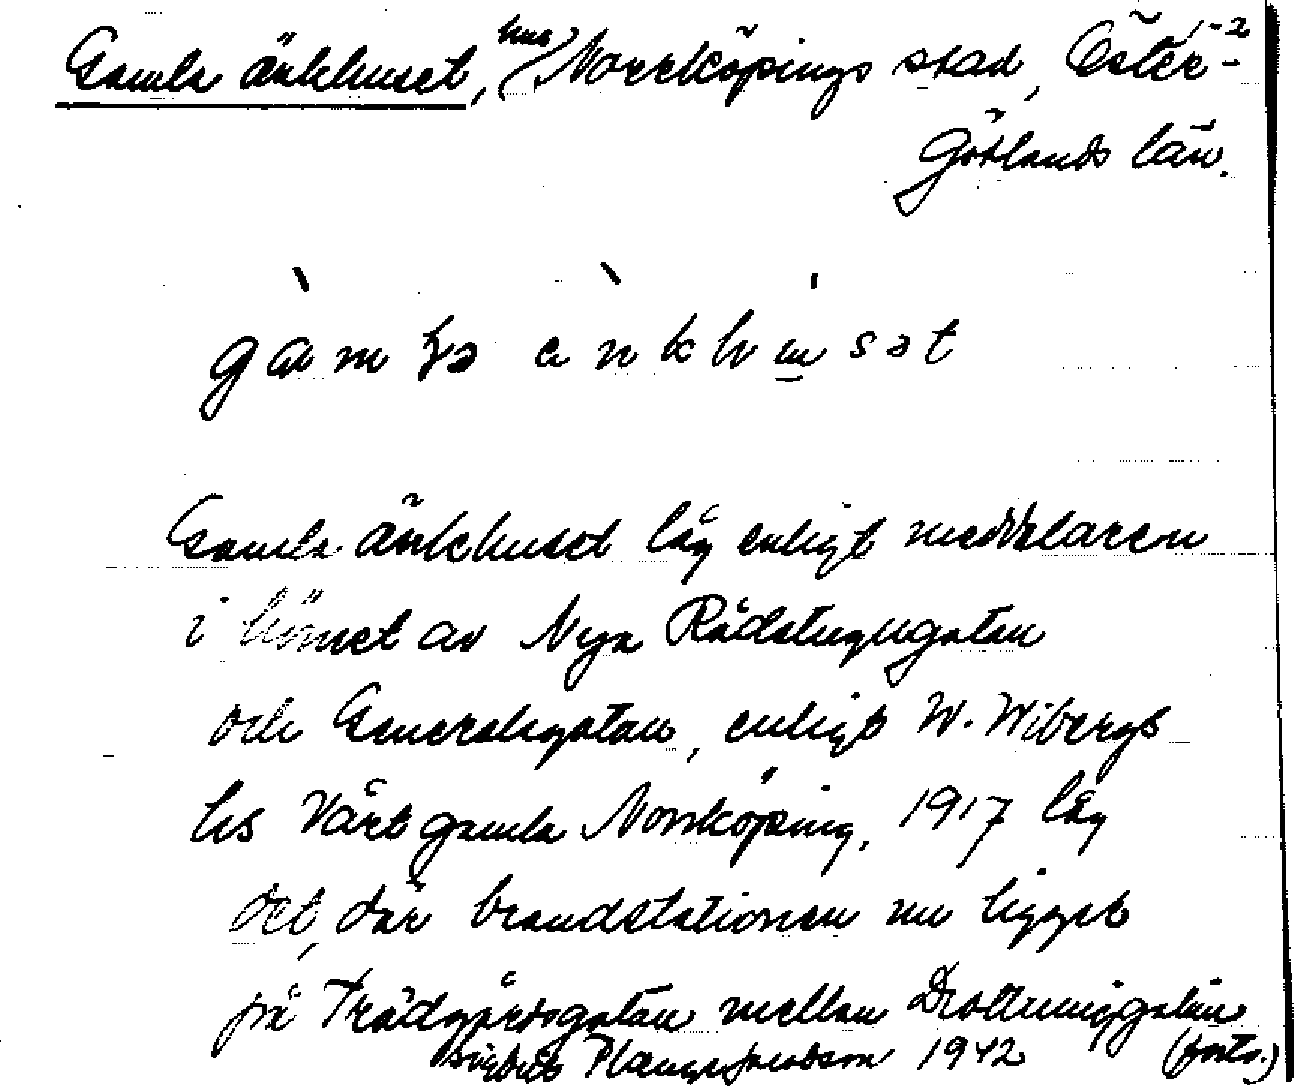 1-2
Gamla änkhuset, hus, Norrköpings stad, Öster-
götlands län.
gamla änkhusət
Gamla änkhuset låg enligt meddelaren
i hörnet av Nya Rådstugugatan
och Generalsgatan, enligt W. Wibergs
bis Vårt gamla Norrköping, 1917 låg
det, där brandstationen nu ligger
på Trädgårdsgatan mellan Drottninggatan
Plange Jacobson 1942 (forts.)